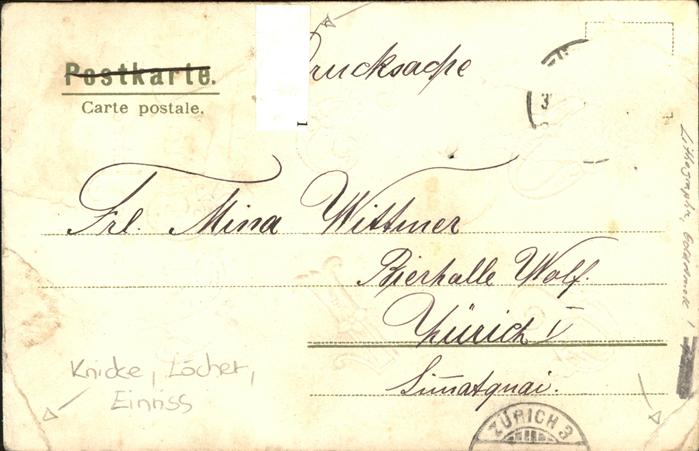 Postkarte.
Carte postale.
Drucksache
3
1
Frl. Mina Wittmer
Bierhalle Wolf.
Zürich I
Limatquai.
Knicke, Löcher,
Einriss
ZÜRICH 3